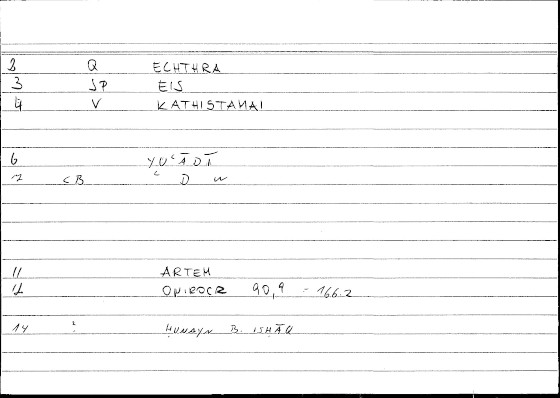 2 Q ECHTHRA
3 SP EIS
4 V KATHISTANAI
6 YUʿĀDĪ
7 <B ʿ D W
11 ARTEM
12 ONIROCR 90,9 - 166.2
14 ² ḤUNAYN B. ISḤĀQ